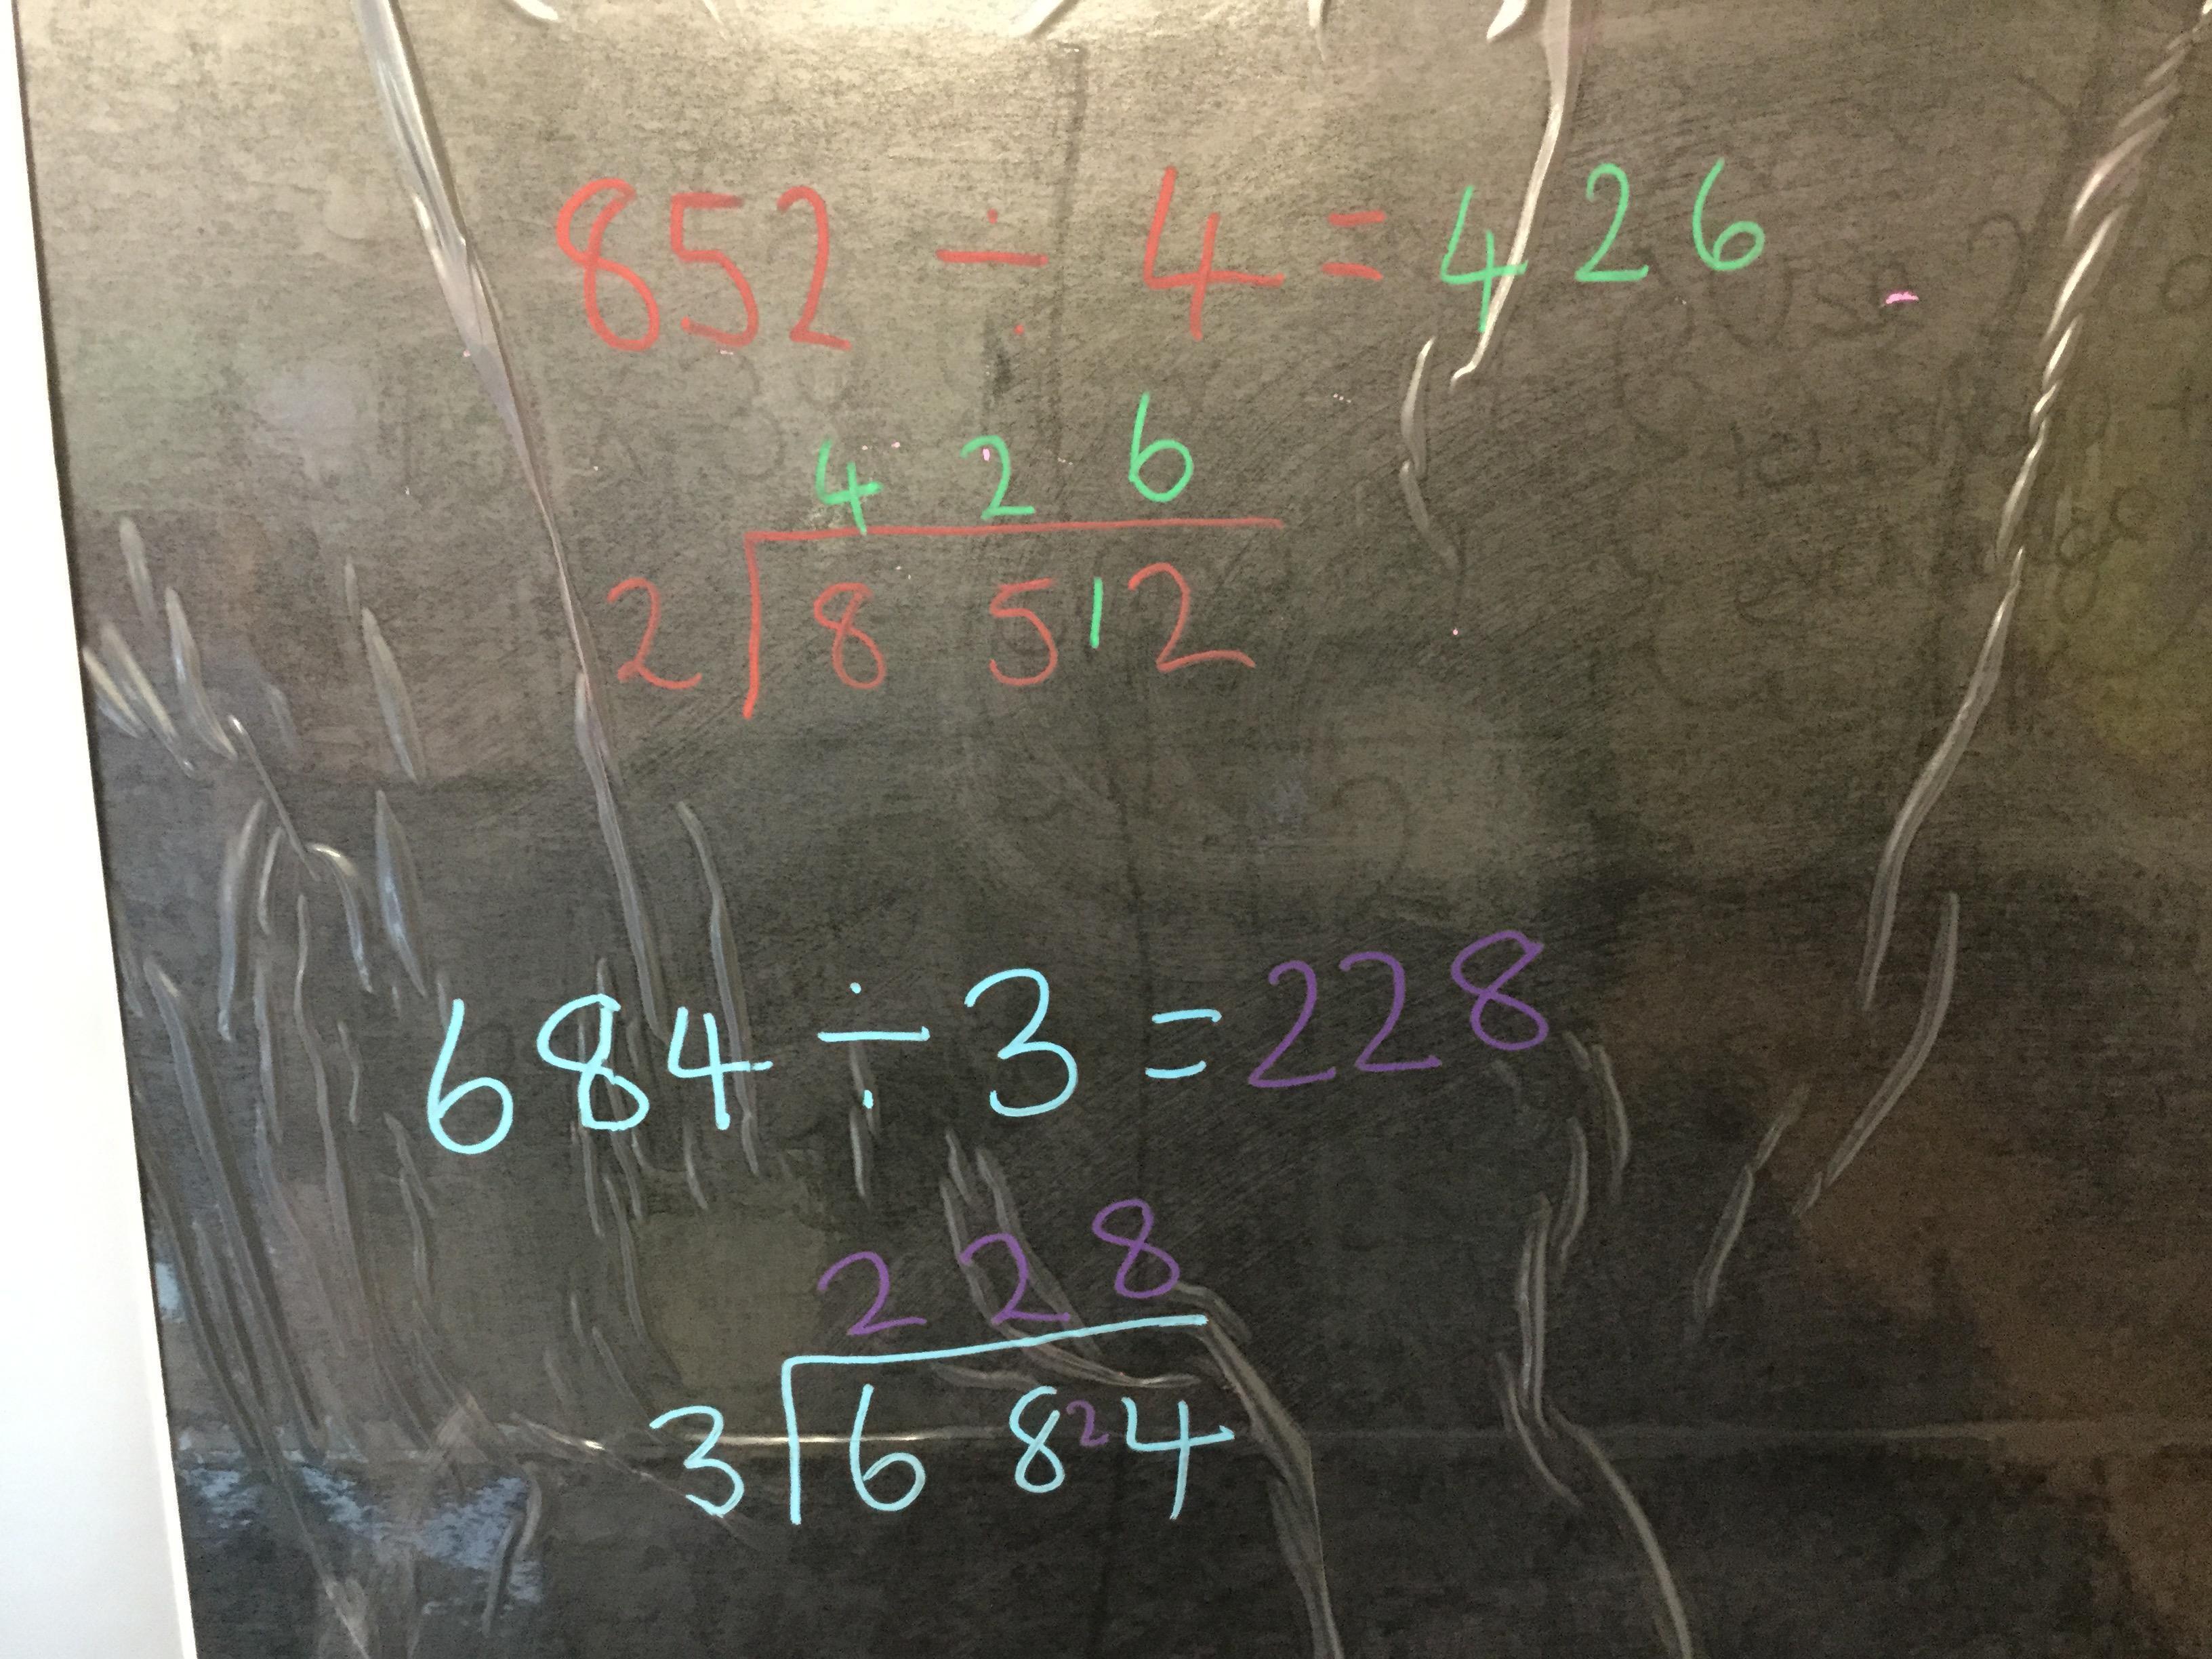 852 ÷ 4 = 426
426
2 8 5 1 2
684 ÷ 3 = 228
228
3 6 8 2 4